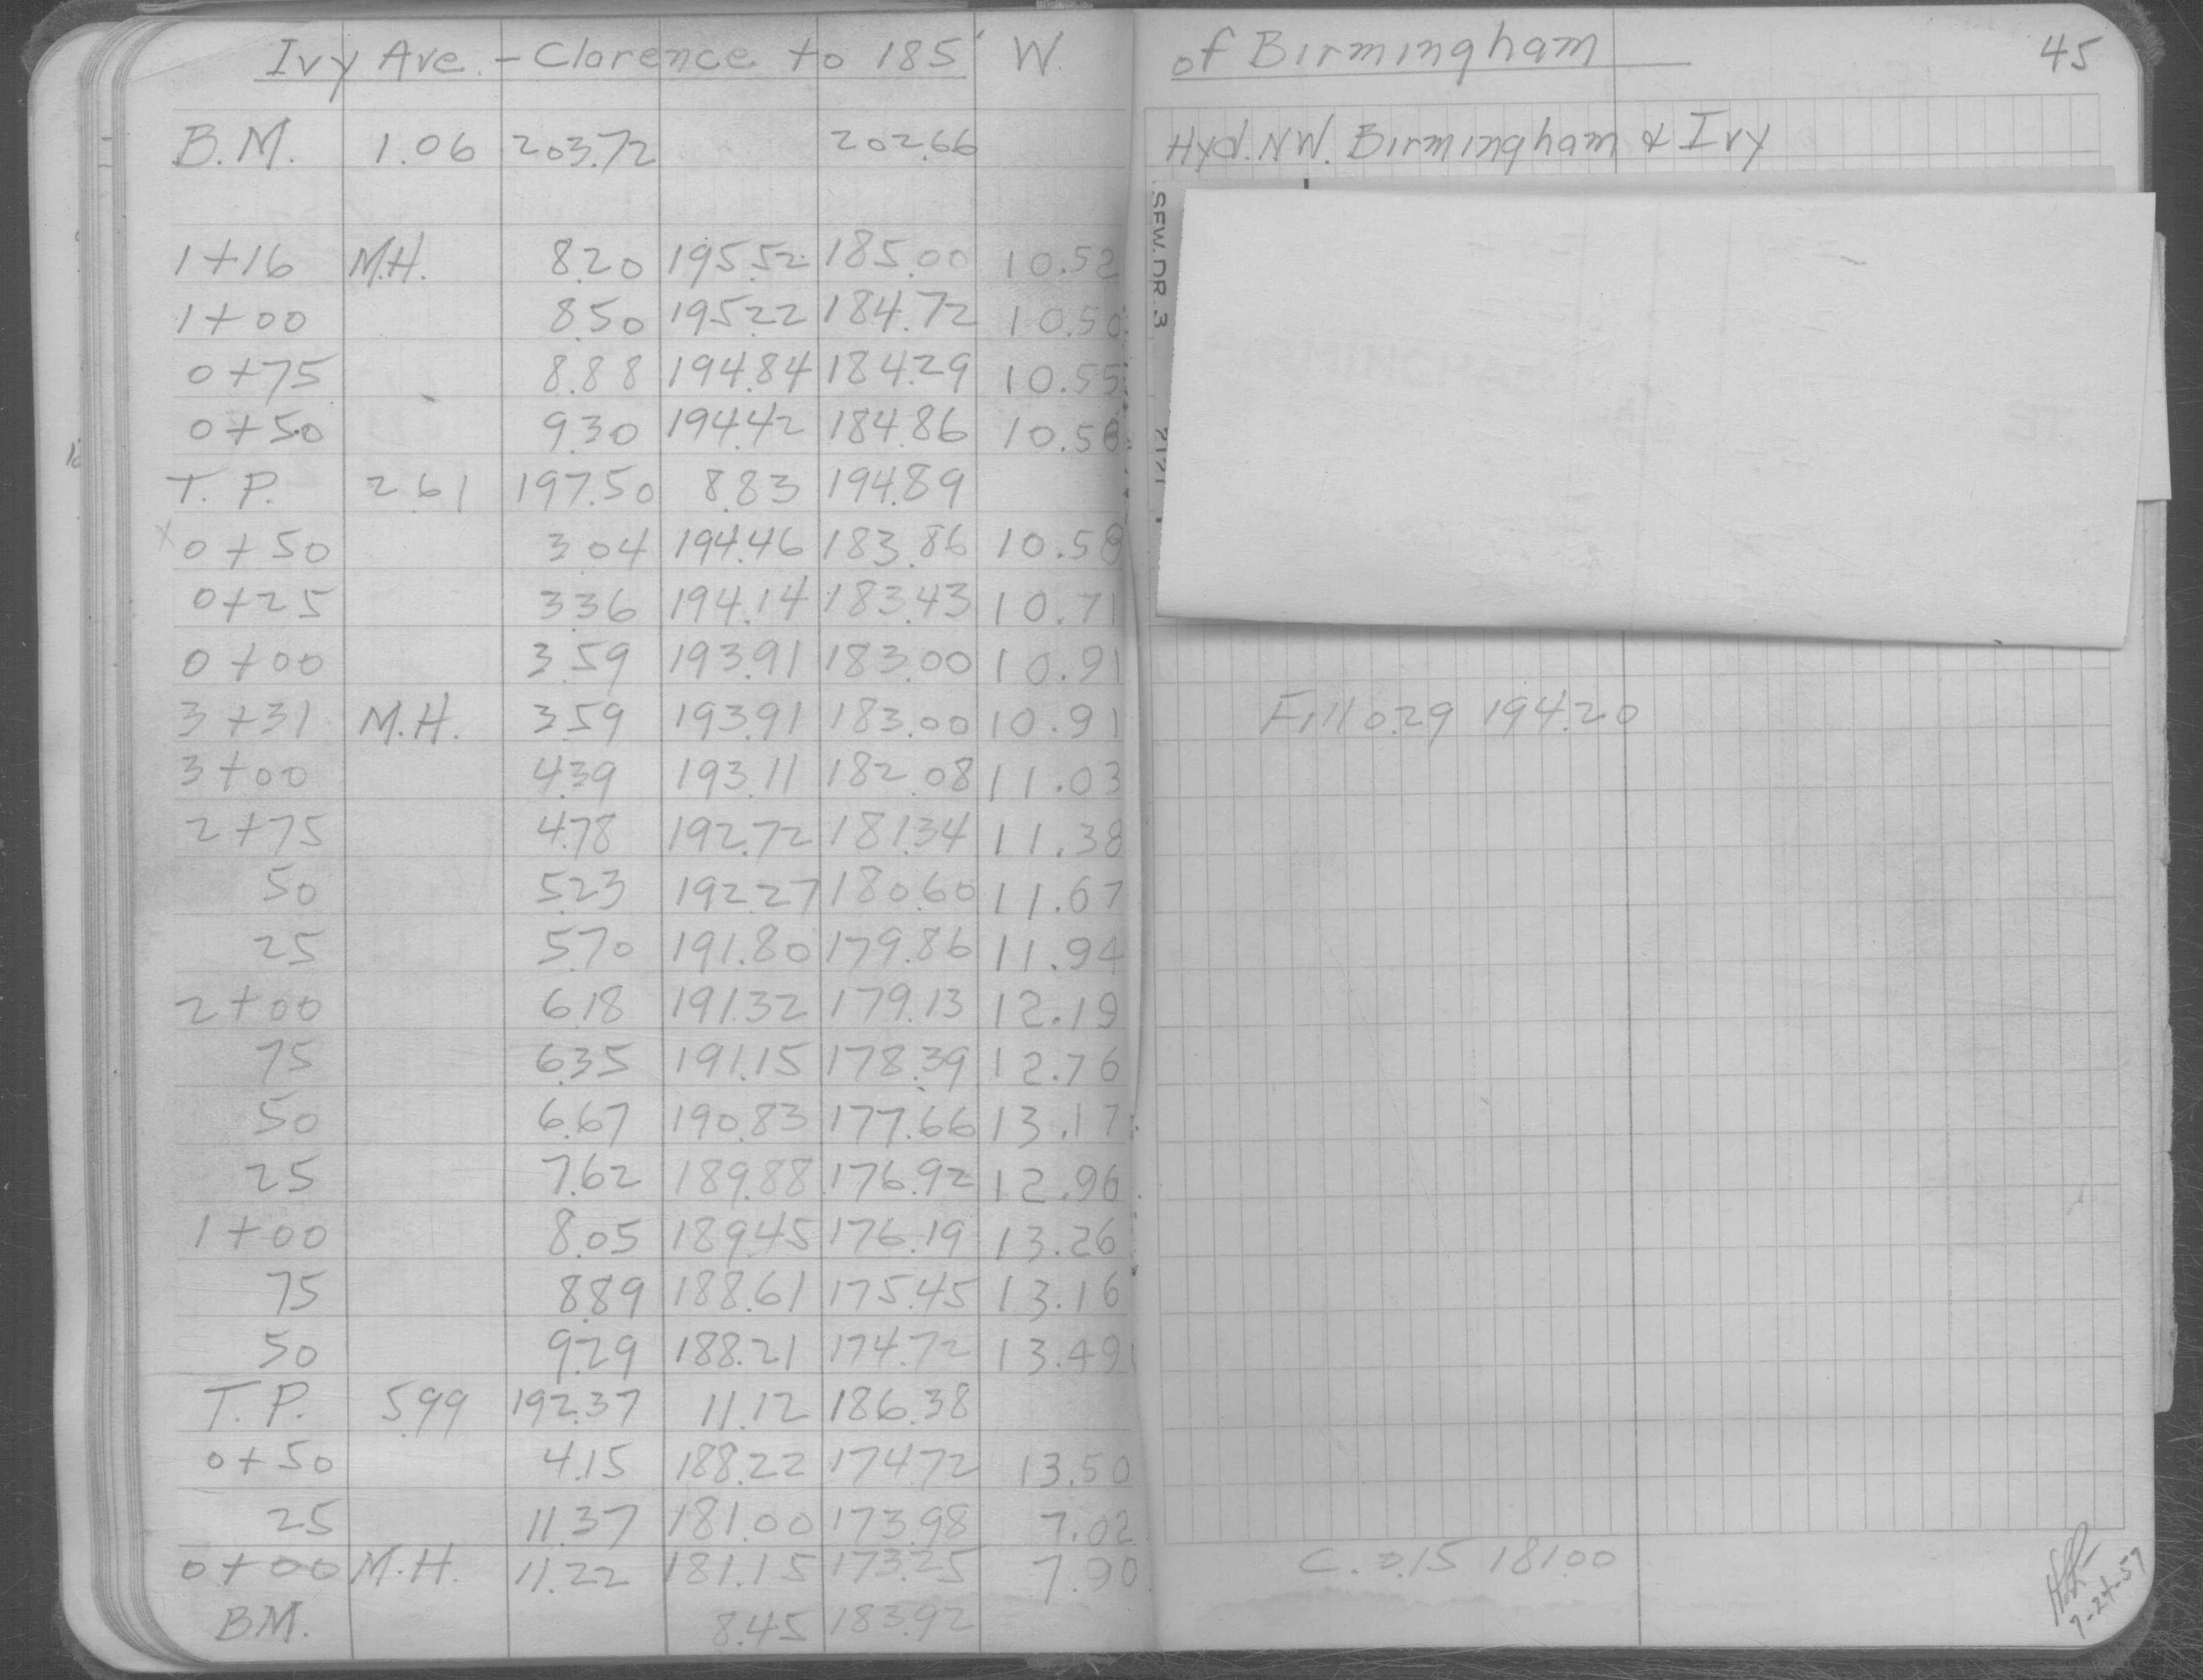 Ivy Ave. - Clarence to 185' W. of Birmingham 45
B.M. 1.06 203.72 202.66 Hyd. N.W. Birmingham & Ivy
1+16 M.H. 8.20 195.52 185.00 10.52
1+00 8.50 195.22 184.72 10.50
0+75 8.88 194.84 184.29 10.55
0+50 9.30 194.42 184.86 10.58
T.P. 2.61 197.50 8.83 194.89
x 0+50 3.04 194.46 183.86 10.58
0+25 3.36 194.14 183.43 10.71
0+00 3.59 193.91 183.00 10.91
3+31 M.H. 3.59 193.91 183.00 10.91 Fill 0.29 194.20
3+00 4.39 193.11 182.08 11.03
2+75 4.78 192.72 181.34 11.38
50 5.23 192.27 180.60 11.67
25 5.70 191.80 179.86 11.94
2+00 6.18 191.32 179.13 12.19
75 6.35 191.15 178.39 12.76
50 6.67 190.83 177.66 13.17
25 7.62 189.88 176.92 12.96
1+00 8.05 189.45 176.19 13.26
75 8.89 188.61 175.45 13.16
50 9.29 188.21 174.72 13.49
T.P. 5.99 192.37 11.12 186.38
0+50 4.15 188.22 174.72 13.50
25 11.37 181.00 173.98 7.02
0+00 M.H. 11.22 181.15 173.25 7.90 C. 0.15 181.00
B.M. 8.45 183.92
SEW. DR. 3
7-24-57